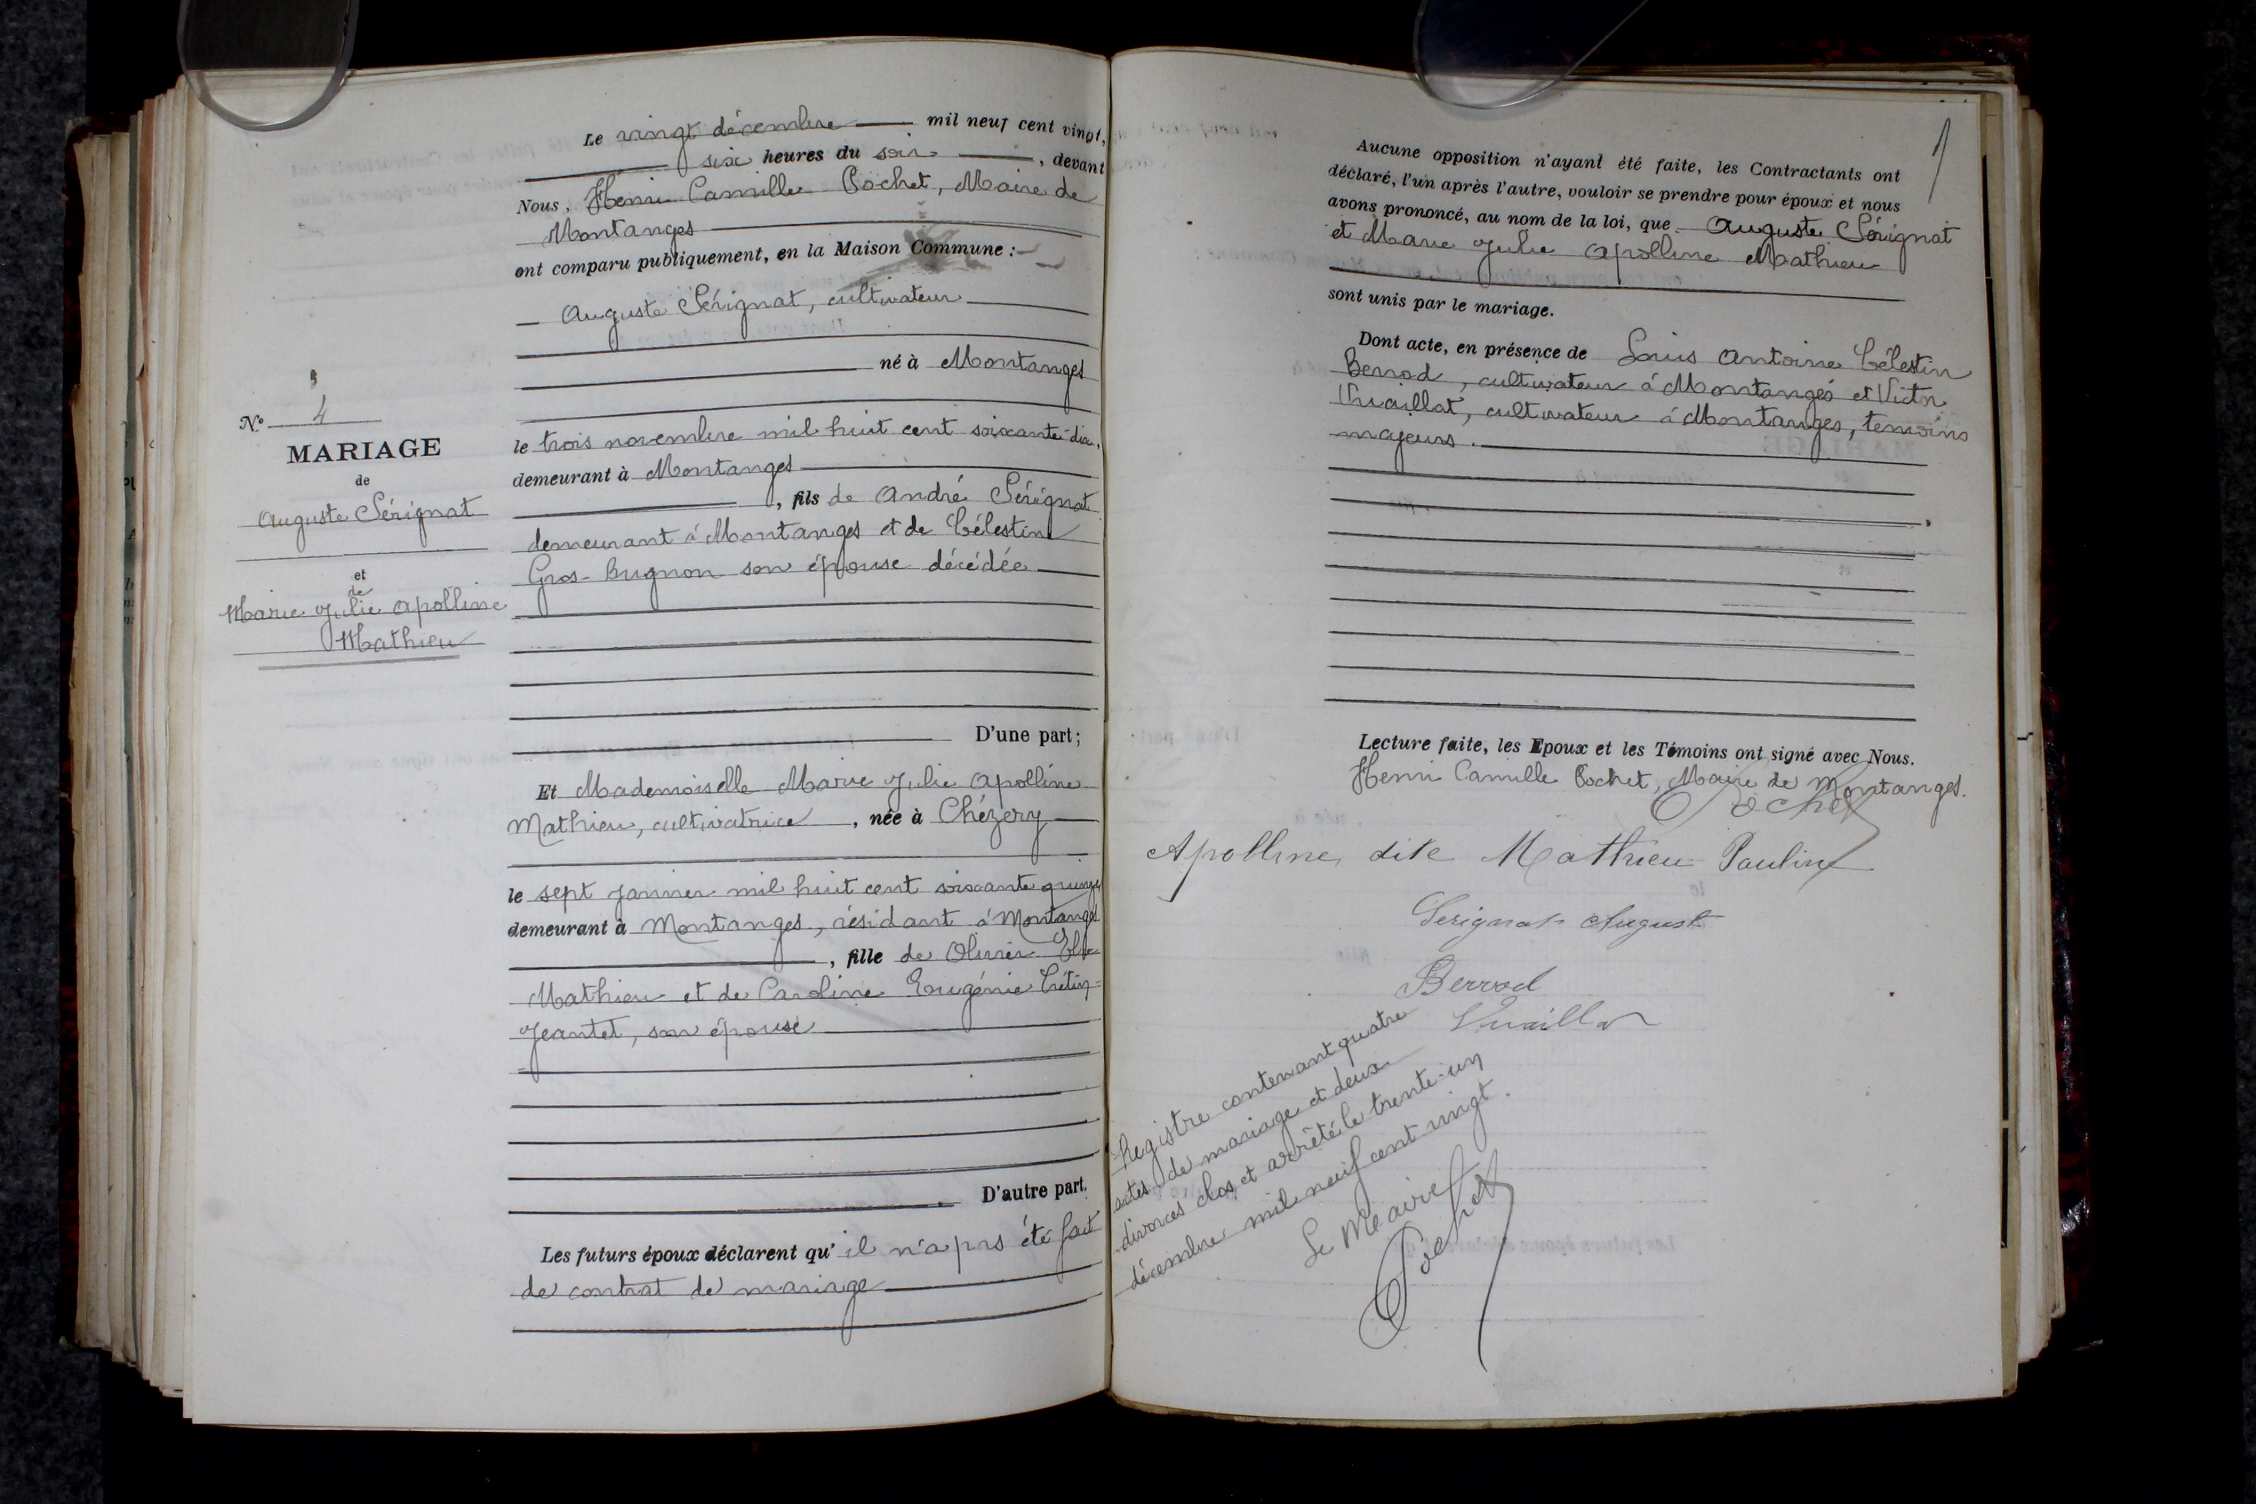 Le vingt décembre mil neuf cent vingt,
six heures du soir, devant
Nous, Henri Camille Pochet, Maire de
Montanges
ont comparu publiquement, en la Maison Commune :
Auguste Sérignat, cultivateur
né à Montanges
le trois novembre mil huit cent soixante-dix,
demeurant à Montanges
, fils de André Sérignat
demeurant à Montanges et de Célestine
Gros-Bugnon son épouse décédée
D'une part;
Et Mademoiselle Marie Julie Apolline
Mathieu, cultivatrice, née à Chézery
le sept janvier mil huit cent soixante quinze
demeurant à Montanges, résidant à Montanges
, fille de Olivier
Mathieu et de Caroline Eugénie Crétin-
Jeantet, son épouse
D'autre part.
Les futurs époux déclarent qu'il n'a pas été fait
de contrat de mariage
N° 4
MARIAGE
de
Auguste Sérignat
et
de
Marie Julie Apolline
Mathieu
1
Aucune opposition n'ayant été faite, les Contractants ont
déclaré, l'un après l'autre, vouloir se prendre pour époux et nous
avons prononcé, au nom de la loi, que Auguste Sérignat
et Marie Julie Apolline Mathieu
sont unis par le mariage.
Dont acte, en présence de Louis Antoine Célestin
Berrod, cultivateur à Montanges et Victor
Vuaillat, cultivateur à Montanges, témoins
majeurs.
Lecture faite, les Epoux et les Témoins ont signé avec Nous.
Henri Camille Pochet, Maire de Montanges.
Pochet
Apolline dite Mathieu Pauline
Serignat Auguste
Berrod
Vuaillat
Registre contenant quatre
actes de mariage et deux
divorces clos et arrêté le trente-un
décembre mil neuf cent vingt.
Le Maire
Pochet